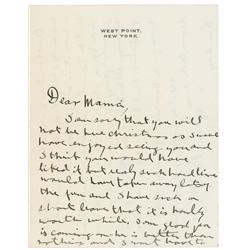 WEST POINT,
NEW YORK.
Dear Mamá,
I am sorry that you will
not be here Christmas as I would
have enjoyed seeing you and
I think you would have
liked it but such hard lines
would have taken away lots of
the fun and I have such a
short leave that it is hardly
worth while. I am glad you
is coming as he is better than
nothing and I won't have to